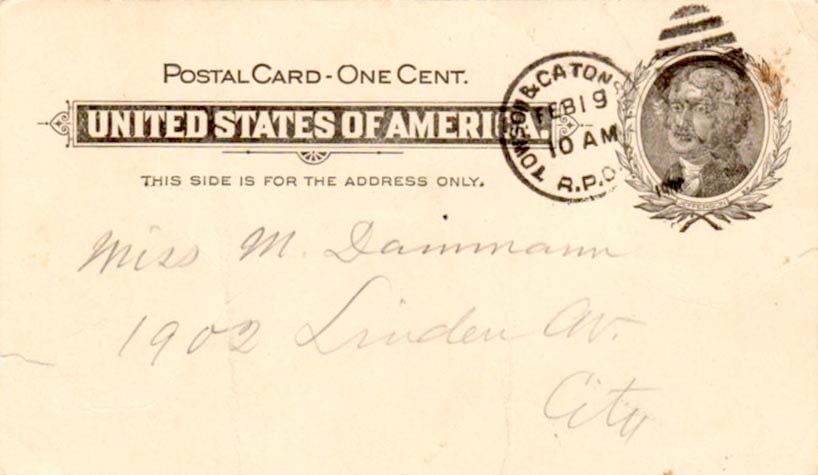 POSTAL CARD - ONE CENT.
UNITED STATES OF AMERICA.
THIS SIDE IS FOR THE ADDRESS ONLY.
TOWSON & CATONS
FEB 19
10 AM
R.P.O.
JEFFERSON
Miss M. Dammann
1902 Linden Av.
City